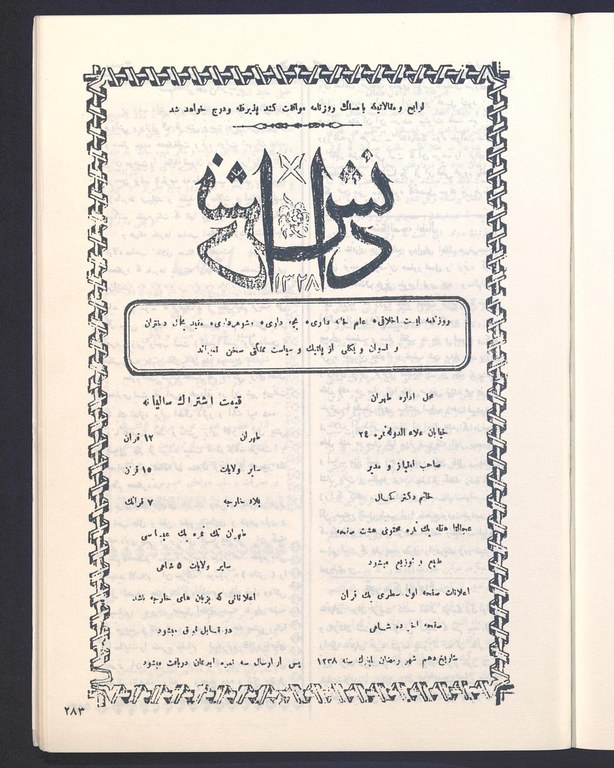 لوایح و مقالاتیکه با مسلک روزنامه موافقت کند پذیرفته ودرج خواهد شد
دانش
۱۳۲۸
روزنامه ایست اخلاقی علم خانه داری بچه داری شوهرداری مفید بحال دختران
نسوان و بکلی از پلتیک و سیاست مملکتی سخن نمیراند
محل اداره طهران
خیابان علاءالدوله نمره ۲۴
صاحب امتیاز و مدیر
خانم دکتر کحال
عجالتا هفته یک نمره محتوی هشت صفحه
طبع و توزیع میشود
اعلانات صفحه اول سطری یک قران
صفحه آخر ده شاهی
بتاریخ دهم شهر رمضان المبارک سنه ۱۳۲۸
قیمت اشتراک سالیانه
طهران ۱۲ قران
سایر ولایات ۱۵ قران
بلاد خارجه ۷ فرانک
طهران تک نمره یک عباسی
سایر ولایات ۵ شاهی
اعلاناتی که بزبان های خارجه باشد
دو مقابل فوق میشود
پس از ارسال سه نمره آبونمان دریافت میشود
۲۸۳